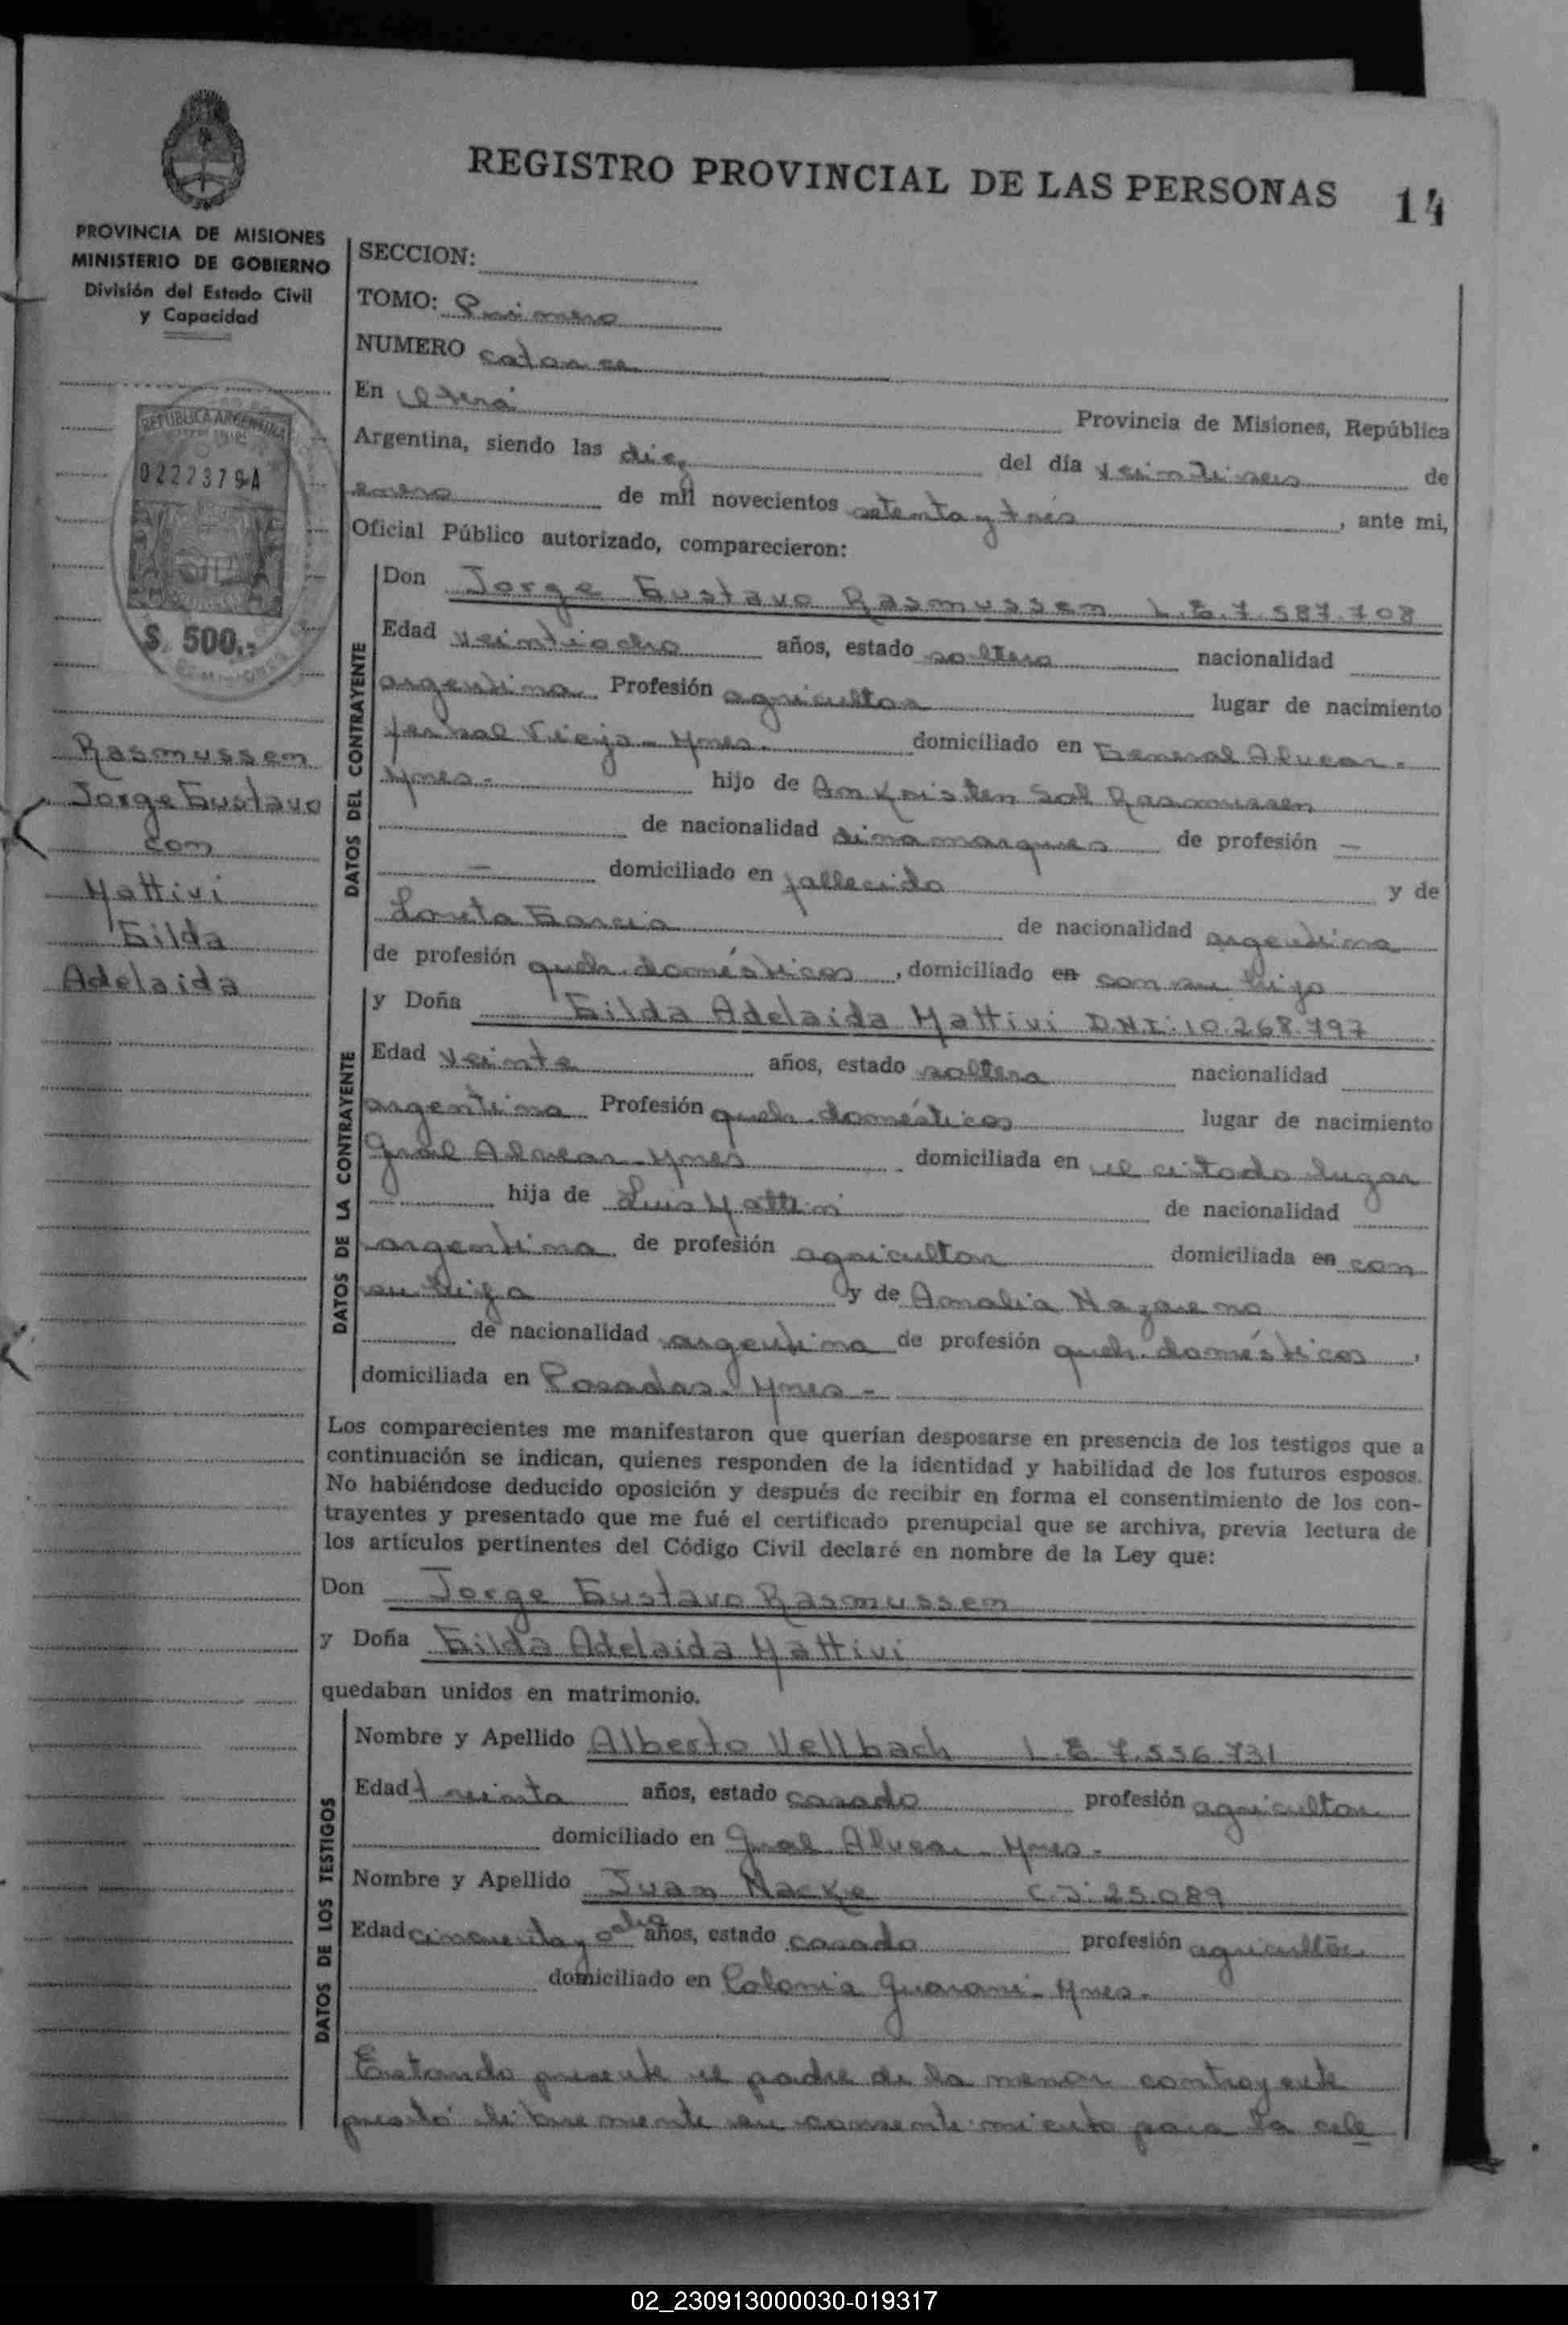 REGISTRO PROVINCIAL DE LAS PERSONAS 14
PROVINCIA DE MISIONES
MINISTERIO DE GOBIERNO
División del Estado Civil
y Capacidad
REPUBLICA ARGENTINA
0222379A
$ 500.-
Rasmussem
Jorge Gustavo
con
Mattivi
Gilda
Adelaida
SECCION:
TOMO: Primero
NUMERO catorce
En Oberá Provincia de Misiones, República
Argentina, siendo las diez del día veintiseis de
enero de mil novecientos setenta y tres, ante mi,
Oficial Público autorizado, comparecieron:
DATOS DEL CONTRAYENTE
Don Jorge Gustavo Rasmussem L.E. 7.587.708
Edad veintiocho años, estado soltero nacionalidad
argentina Profesión agricultor lugar de nacimiento
Yerbal Viejo - Mnes. domiciliado en General Alvear.
Mnes. - hijo de Kristen Rasmussen
de nacionalidad dinamarques de profesión —
— domiciliado en fallecido y de
Garcia de nacionalidad argentina
de profesión queh. domésticos, domiciliado en con su hijo
DATOS DE LA CONTRAYENTE
y Doña Gilda Adelaida Mattivi D.N.I. 10.268.797
Edad veinte años, estado soltera nacionalidad
argentina Profesión queh. domésticos lugar de nacimiento
Gral Alvear - Mnes domiciliada en el citado lugar
hija de Luis Mattivi de nacionalidad
argentina de profesión agricultor domiciliada en con
su hija y de Amalia Nazareno
de nacionalidad argentina de profesión queh. domésticos,
domiciliada en Posadas - Mnes -
Los comparecientes me manifestaron que querían desposarse en presencia de los testigos que a
continuación se indican, quienes responden de la identidad y habilidad de los futuros esposos.
No habiéndose deducido oposición y después de recibir en forma el consentimiento de los con-
trayentes y presentado que me fué el certificado prenupcial que se archiva, previa lectura de
los artículos pertinentes del Código Civil declaré en nombre de la Ley que:
Don Jorge Gustavo Rasmussem
y Doña Gilda Adelaida Mattivi
quedaban unidos en matrimonio.
DATOS DE LOS TESTIGOS
Nombre y Apellido Alberto Vellbach L.E. 7.556.731
Edad treinta años, estado casado profesión agricultor
domiciliado en Gral Alvear - Mnes.
Nombre y Apellido Juan Macke C.I. 25.089
Edad cincuenta y ocho años, estado casado profesión agricultor
domiciliado en Colonia Guarani - Mnes.
Estando presente el padre de la menor contrayente
prestó libremente su consentimiento para la cele
02_230913000030-019317